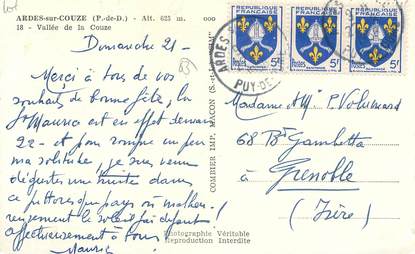 ARDES-sur-COUZE (P.-de-D.) - Alt. 625 m. 000
18 - Vallée de la Couze
Dimanche 21-
Merci à tous de vos
souhaits de bonne fête, la
St Maurice est en effet demain
22- et pour rompre un peu
ma solitude, je suis venu
déguster une truite dans
ce pittoresque pays où malheu-
reusement le soleil fait défaut!
affectueusement à tous
Maurice
COMBIER IMP. MACON
Photographie Véritable
Reproduction Interdite
REPUBLIQUE FRANCAISE
Postes 5f
REPUBLIQUE FRANCAISE
Postes 5f
REPUBLIQUE FRANCAISE
Postes 5f
ARDES
PUY-DE-
Madame & Mr P.
68 Bd Gambetta
à Grenoble
(Isère)